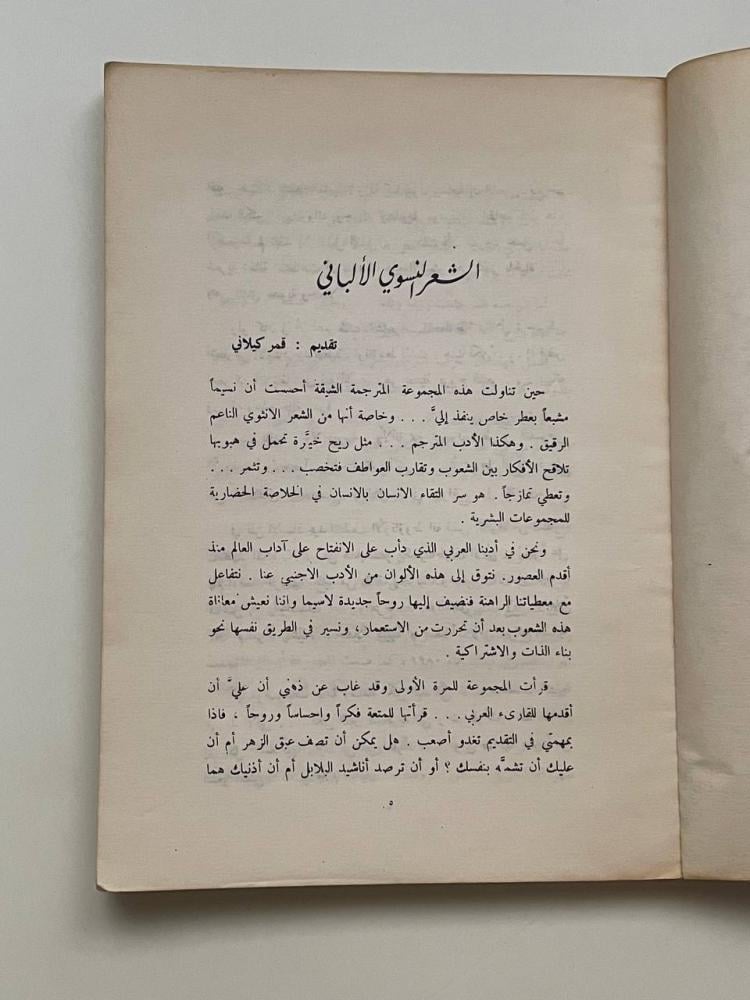 الشعر النسوي الألباني
تقديم : قمر كيلاني
حين تناولت هذه المجموعة المترجمة الشيقة أحسست أن نسيماً
مشبعاً بعطر خاص ينفذ إليَّ . . . وخاصة أنها من الشعر الانثوي الناعم
الرقيق . وهكذا الأدب المترجم . . . مثل ريح خيَّرة تحمل في هبوبها
تلاقح الأفكار بين الشعوب وتقارب العواطف فتخصب . . . وتثمر . . .
وتعطي تمازجاً . هو سر التقاء الانسان بالانسان في الخلاصة الحضارية
للمجموعات البشرية .
ونحن في أدبنا العربي الذي دأب على الانفتاح على آداب العالم منذ
أقدم العصور. نتوق إلى هذه الألوان من الأدب الاجنبي عنا . نتفاعل
مع معطياتنا الراهنة فنضيف إليها روحاً جديدة لاسيما واننا نعيش معاناة
هذه الشعوب بعد أن تحررت من الاستعمار ، ونسير في الطريق نفسها نحو
بناء الذات والاشتراكية .
قرأت المجموعة للمرة الأولى وقد غاب عن ذهني أن عليَّ أن
أقدمها للقارىء العربي . . . قرأتها للمتعة فكراً واحساساً وروحاً ، فاذا
بمهمتي في التقديم تغدو أصعب . هل يمكن أن تصف عبق الزهر أم أن
عليك أن تشمَّه بنفسك ؟ أو أن ترصد أناشيد البلابل أم أن أذنيك هما
٥